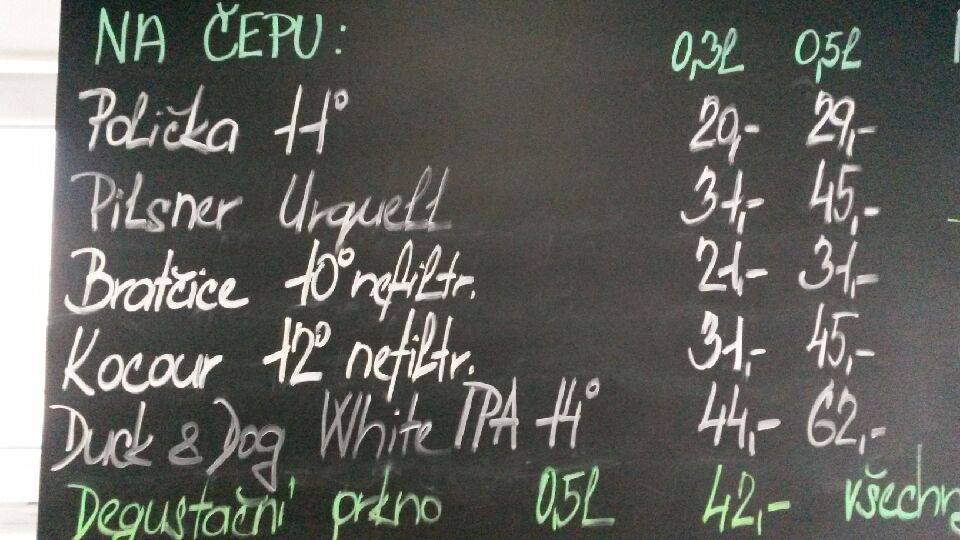 NA ČEPU: 0,3L 0,5L
Polička 11° 20,- 29,-
Pilsner Urquell 31,- 45,-
Bratčice 10° nefiltr. 21,- 31,-
Kocour 12° nefiltr. 31,- 45,-
Duck & Dog White IPA 44,- 62,-
Degustační prkno 0,5L 42,-